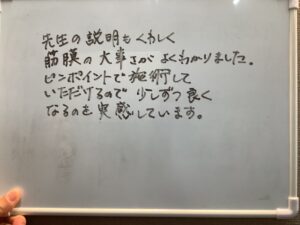 先生の説明もくわしく
筋膜の大事さがよくわかりました。
ピンポイントで施術して
いただけるので少しずつ良く
なるのを実感しています。